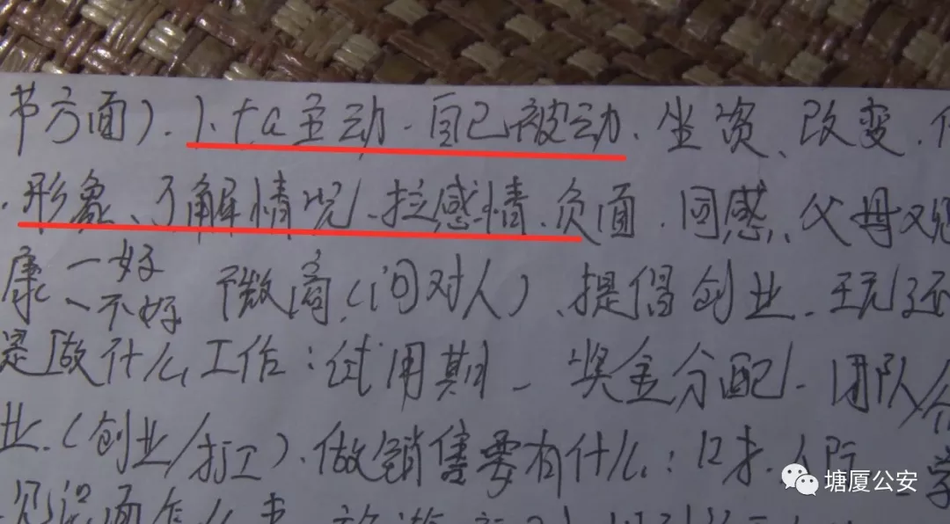 节方面).1.ta主动.自己被动、坐资、改变、
.形象、了解情况、拉感情、负面、同感、父母
康 一好 下微商(问对人)、提倡创业、
、不好
是做什么工作:试用期-奖金分配-团队/
业.(创业/打工).做销售要有什么:口才、
塘厦公安